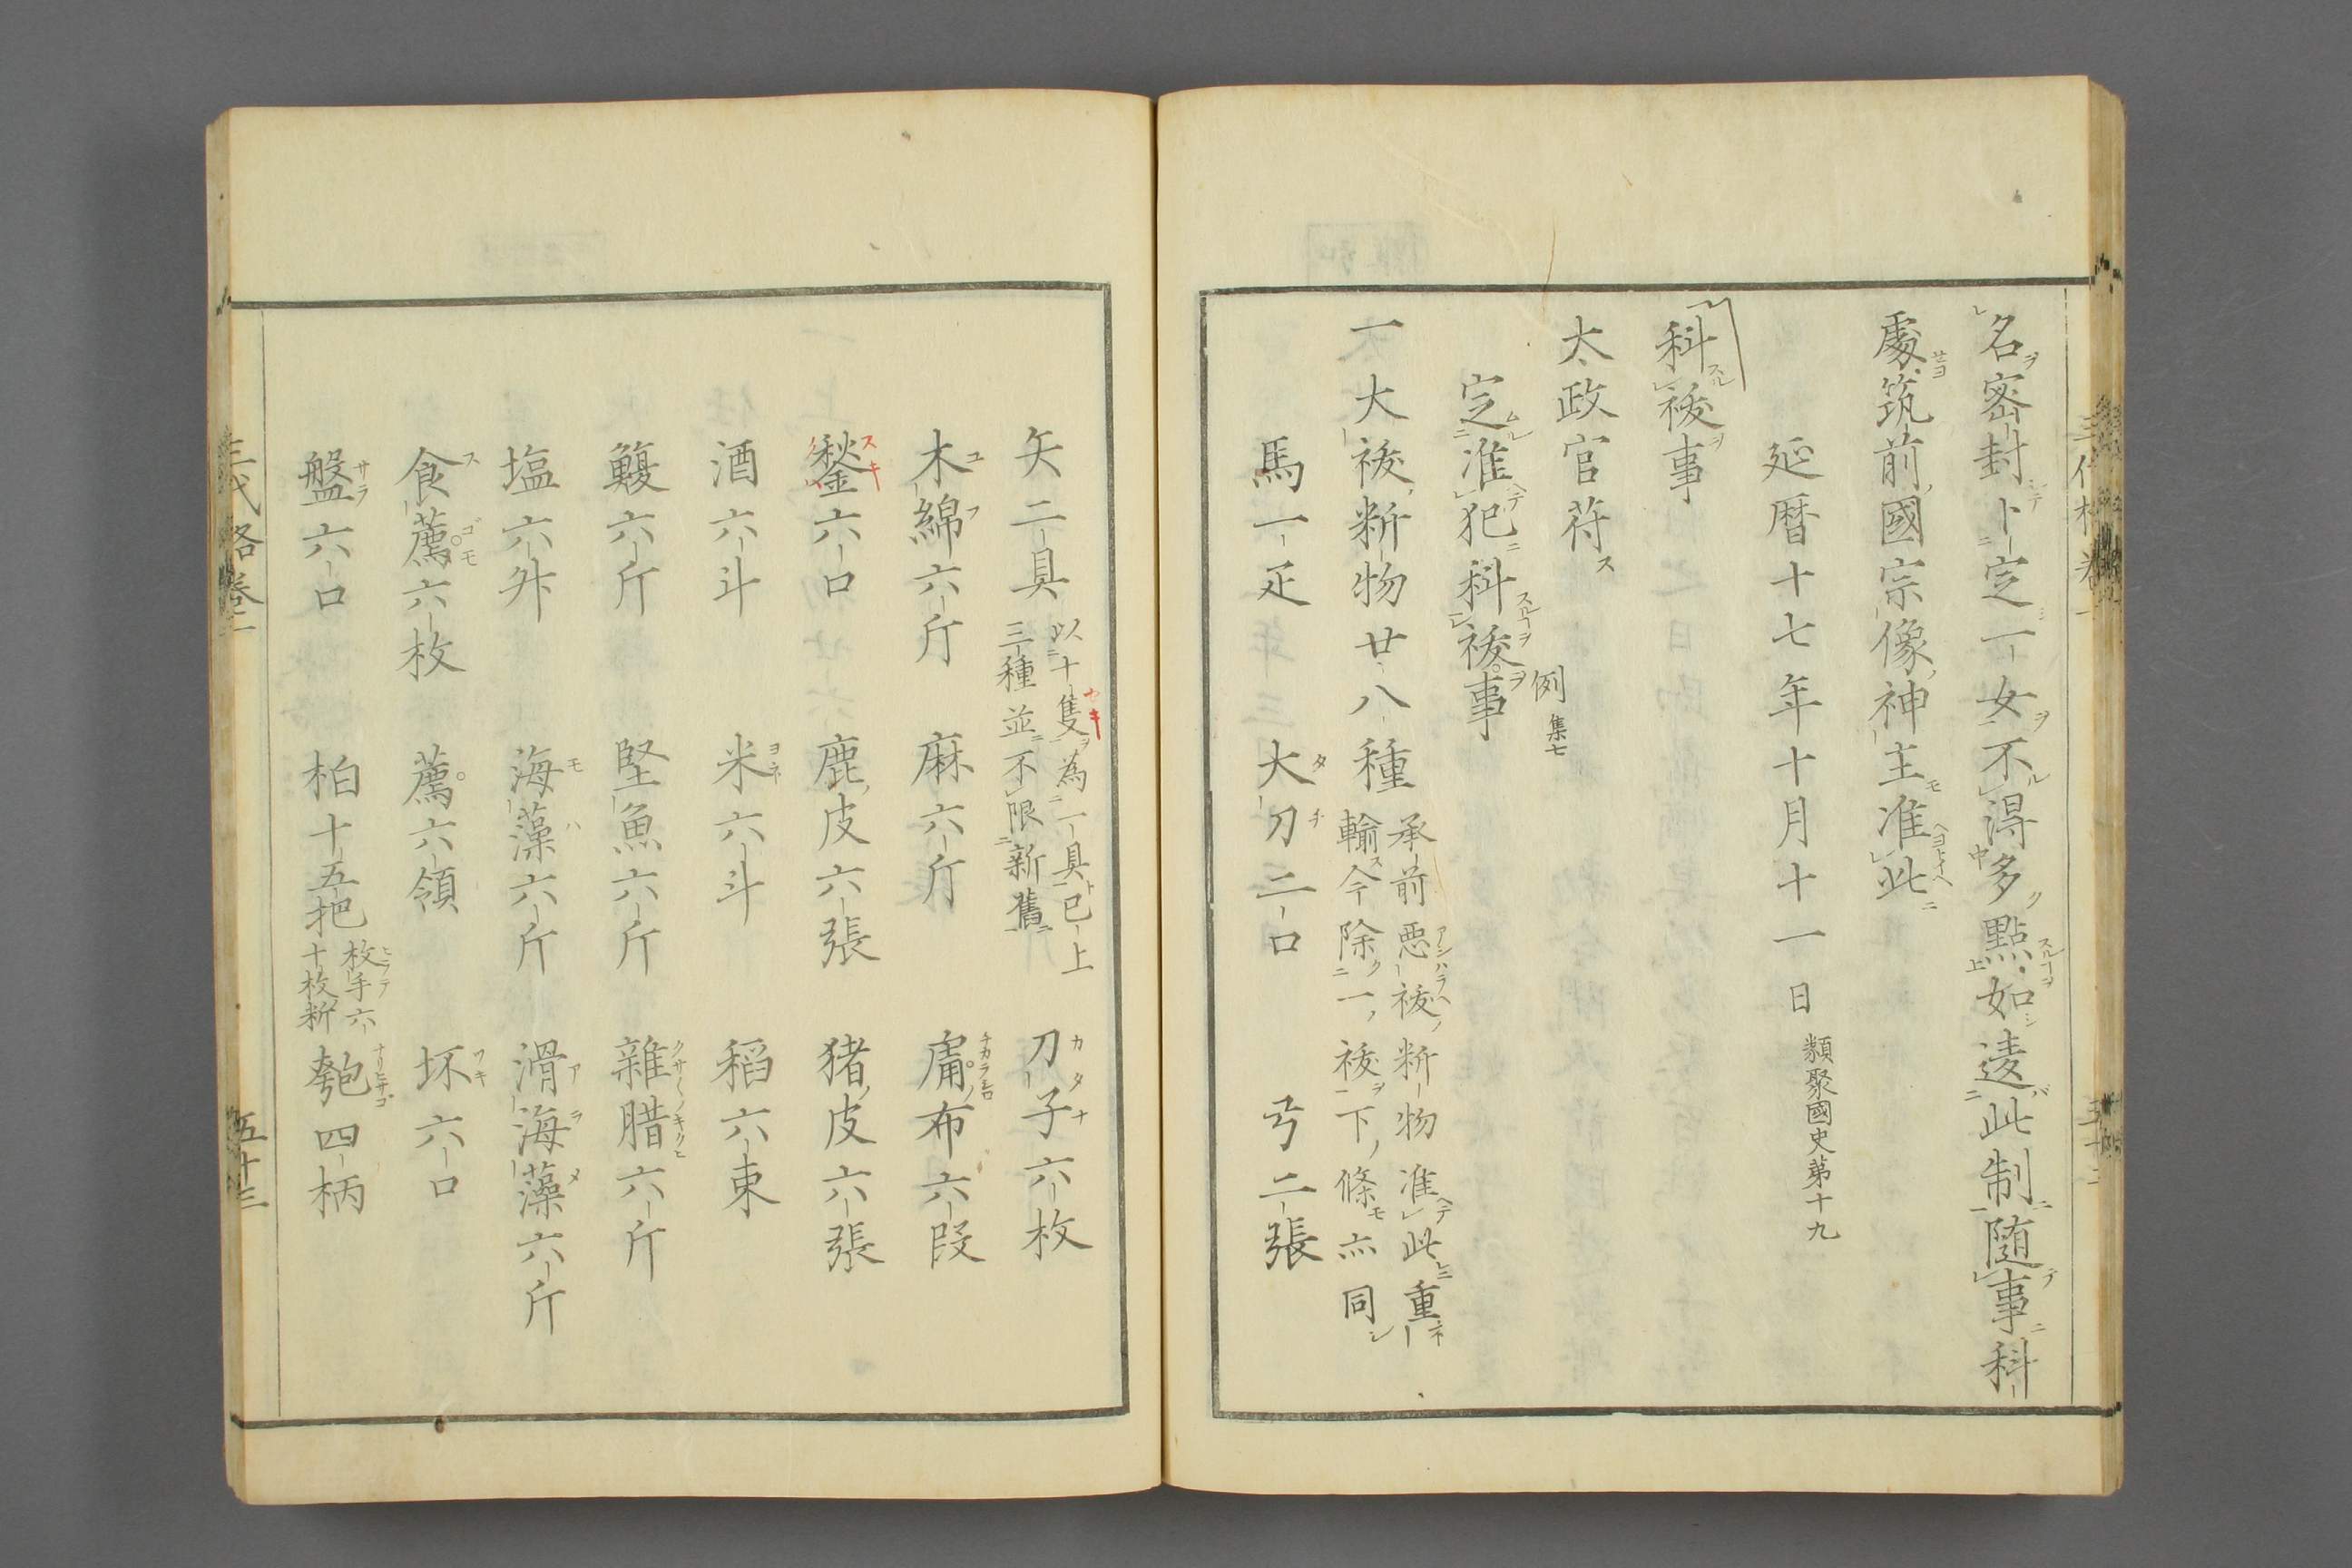 名密封卜定一女不得多點如違此制随事科
處筑前國宗像神主准此
延暦十七年十月十一日 類聚國史第十九
科祓事
太政官苻
定准犯科祓例事 集七
一大祓料物廿八種 承前惡祓料物准此重
輸今除一祓下條亦同
馬一疋 大刀二口 弓二張
矢二具 以十隻為一具已上
三種並不限新舊 刀子六枚
木綿六斤 麻六斤 庸布六段
鍫六口 鹿皮六張 猪皮六張
酒六斗 米六斗 稻六束
鰒六斤 堅魚六斤 雜腊六斤
塩六升 海藻六斤 滑海藻六斤
食薦六枚 薦六領 坏六口
盤六口 柏十五把 枚手六
十枚料 匏四柄
三代格卷一 五十三